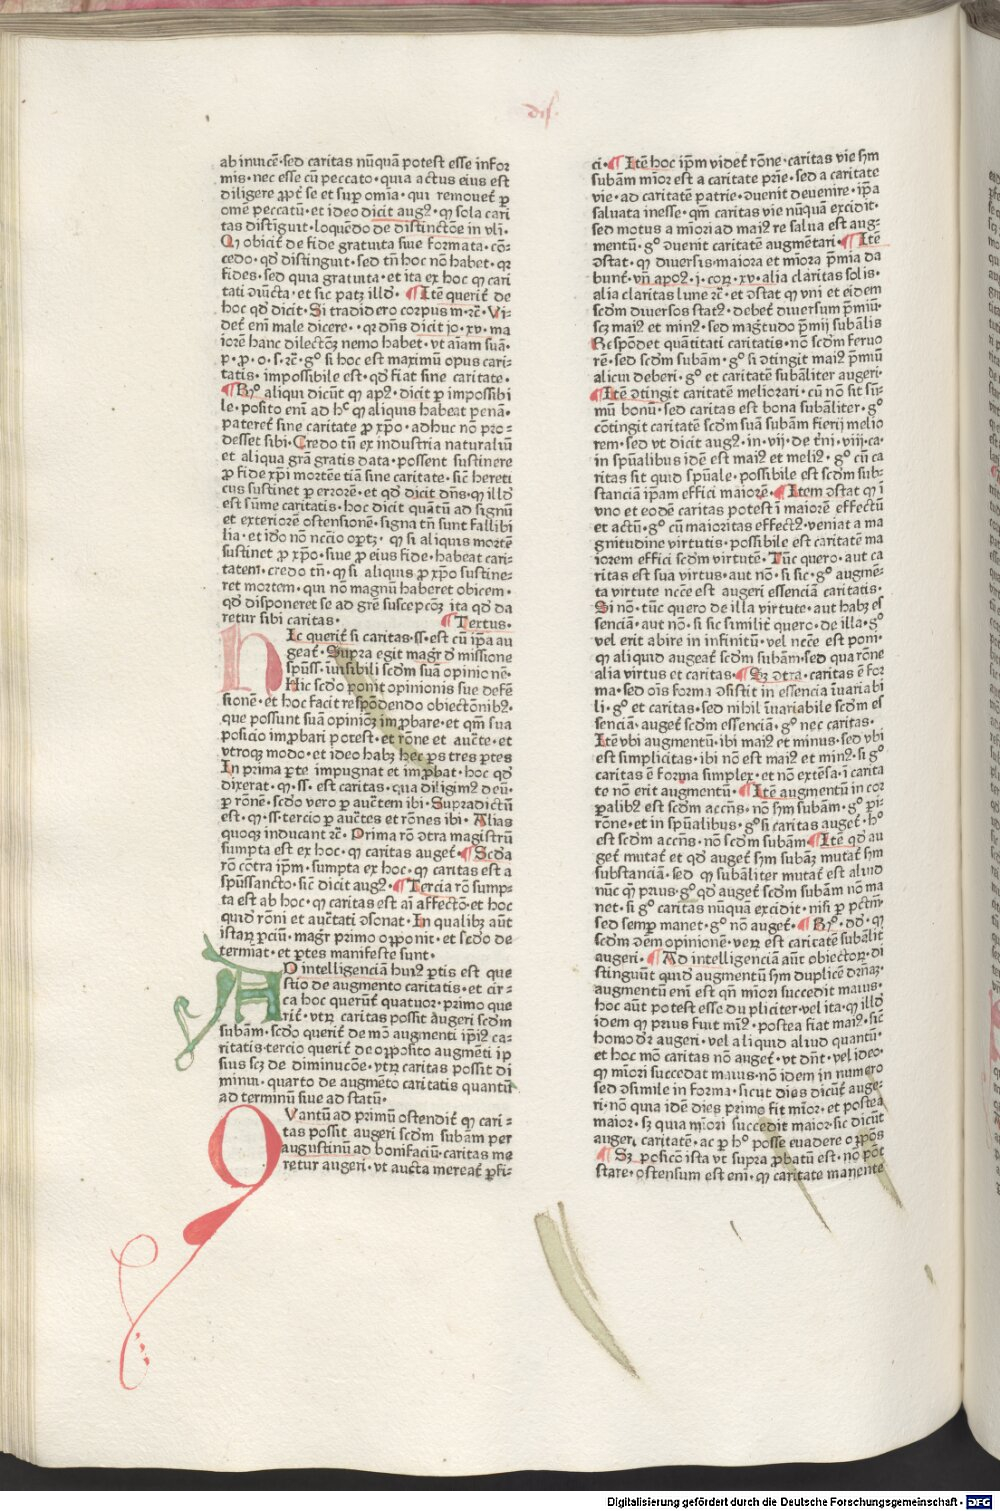 dis.
ab inuicē·sed caritas nūquā potest esse infor
mis·nec esse cū peccato·quia actus eius est
diligere ꝓpt᷑ se et suꝑ omia·qui remouet᷑ ꝑ
omē peccatū·et ideo dicit augꝰ·ꝙ sola cari
tas distīguit·loquēdo de distinctōe in vli·
Qi obicit᷑ de fide gratuita siue formata·cō-
cedo·qd̓ distinguit·sed tn̄ hoc nō habet·qꝛ
fides·sed quia gratuita·et ita ex hoc ꝙ cari
tati ꝯiūcta·et sic patꝫ illd̓· ¶Itē querit᷑ de
hoc qd̓ dicit·Si tradidero corpus m·rc̄·Vi-
det᷑ eni male dicere··qꝛ dn̄s dicit jo·xv·ma
iorē hanc dilectōeꝫ nemo habet·vt aīam suā·
p·ꝓ·o·s·rc̄·gͦ si hoc est maximū opus cari-
tatis·impossibile est·qd̓ fiat sine caritate·
¶Rͦ aliqui dicūt ꝙ apꝰ·dicit ꝑ impossibi
le·posito eni ad hͨ ꝙ aliquis habeat penā·
pateret᷑ sine caritate ꝓ xp̄o·adhuc nō pro-
desset sibi·Credo tn̄ ex industria naturaliū
et aliqua grā gratis data·possent sustinere
ꝓ fide xp̄i mortē etiā sine caritate·sic̄ hereti
cus sustinet ꝓ errorē·et qd̓ dicit dn̄s·ꝙ illd̓
est sūme caritatis·hoc dicit quātū ad signū
et exteriorē ostensionē·signa tn̄ sunt fallibi
lia·et iđo nō nccīo oꝑtꝫ·ꝙ si aliquis mortē
sustinet ꝓ xp̄o·siue ꝓ eius fide·habeat cari-
tatem·credo tn̄·ꝙ si aliquis ꝓ xp̄o sustine-
ret mortem·qui nō magnū haberet obicem·
qd̓ disponeret se ad grē suscepcōꝫ ita qd̓ da
retur sibi caritas· ¶Textus·
HIc querit᷑ si caritas·ss·est cū ip̄a au
geat᷑·Supra egit magr̄ d̓ missione
spūss·īuisibili scdm suā opinionē·
Hic scd̓o ponit opinionis sue defē
sionē·et hoc facit respōdendo obiectōnibꝰ·
que possunt suā opinioꝫ imꝓbare·et qm̄ sua
posicio imꝓbari potest·et rōne et auctē·et
vtroqꝫ modo·et ideo habꝫ hec ps tres ptes
In prima ꝑte impugnat et imꝓbat·hoc qd̓
dixerat·ꝙ·ss·est caritas·qua diligimꝰ deū·
ꝑ rōnē·scd̓o vero ꝑ auctēm ibi·Supradictū
est·ꝙ·ss·tercio ꝑ auctēs et rōnes ibi·Alias
quoqꝫ inducant rc̄·Prima rō ꝯtra magistrū
sumpta est ex hoc·ꝙ caritas auget᷑·¶Scd̓a
rō cōtra ip̄m·sumpta ex hoc·ꝙ caritas est a
spūssancto·sic̄ dicit augꝰ·¶Tercia rō sump-
ta est ab hoc·ꝙ caritas est aī affectō·et hoc
quid rōni et auctati ꝯsonat·In qualibꝫ aūt
istaꝝ ꝑciū·magr̄ primo opponit·et scd̓o de
termiat·et ꝑtes manifeste sunt·
AD intelligenciā huiꝰ ꝑtis est que
stio de augmento caritatis·et cir-
ca hoc querūt᷑ quatuor·primo que
rit᷑·vtꝝ caritas possit augeri scdm
subām·scd̓o querit᷑ de mō augmenti ip̄iꝰ ca-
ritatis·tercio querit᷑ de opposito augmēti ip
sius scꝫ de diminucōe·vtꝝ caritas possit di
minui·quarto de augmēto caritatis quantū
ad terminū siue ad statū·
QVantū ad primū ostendit᷑ ꝙ cari-
tas possit augeri scdm subam per
augustinū ad bonifaciū·caritas me
retur augeri·vt aucta mereat᷑ ꝑfi-
ci·¶Itē hoc ip̄m videt᷑ rōne·caritas vie scdm
subām mīor est a caritate pr̄ie·sed a caritate
vie·ad caritatē patrie·ꝯuenit deuenire·ip̄a
saluata inesse·qm̄ caritas vie nūquā excidit·
sed motus a mīori ad maiꝰ re salua est aug-
mentū·gͦ ꝯuenit caritatē augmētari·¶Itē
ꝯstat·ꝙ diuersis maiora et miora p̄mia da
bunt᷑·vn̄ apoꝰ·i·coꝝ·xv·alia claritas solis·
alia claritas lune rc̄·et ꝯstat ꝙ vni et eidem
scdm diuersos statꝰ·debet᷑ diuersum p̄miū·
scꝫ maiꝰ et minꝰ·sed magtudo p̄mij subālis
Respōdet quātitati caritatis·nō scdm feruo
rē·sed scdm subam·gͦ si ꝯtingit maiꝰ p̄miū
alicui deberi·gͦ et caritatē subāliter augeri·
¶Itē ꝯtingit caritatē meliorari·cū nō sit sū-
mū bonū·sed caritas est bona subāliter·gͦ
cōtingit caritatē scdm suā subam fieri melio
rem·sed vt dicit augꝰ·in·vij·de t̄ni·viij·ca·
in spūalibus idē est maiꝰ et meliꝰ·gͦ cū ca
ritas sit quid spūale·possibile est scdm sub-
stanciā ip̄am effici maiorē·¶Item ꝯstat ꝙ ī
vno et eodē caritas potest ī maiorē effectū
et actū·gͦ cū maioritas effectꝰ·veniat a ma
gnitudine virtutis·possibile est caritatē ma
iorem effici scdm virtutē·Tūc quero·aut ca
ritas est sua virtus·aut nō·si sic·gͦ augmē-
ta virtute nccē est augeri essenciā caritatis·
Si nō·tūc quero de illa virtute·aut habꝫ es
senciā·aut nō·si sic similit᷑ quero·de illa·gͦ
vel erit abire in infinitū·vel necē est poni·
ꝙ aliquid augeat᷑ scdm subām·sed qua rōne
alia virtus et caritas·¶Sꝫ ꝯtra·caritas ē for
ma·sed oīs forma ꝯsistit in essencia īuariabi
li·gͦ et caritas·sed nihil īuariabile scdm es
senciā·auget᷑ scdm essenciā·gͦ nec caritas·
Itē vbi augmentū·ibi maiꝰ et minus·sed vbi
est simplicitas·ibi nō est maiꝰ et minꝰ·si gͦ
caritas ē forma simplex·et nō extēsa·ī carita
te nō erit augmentū·¶Itē augmentū in cor
ꝑalibꝰ est scdm accn̄s·nō scdm subam·gͦ pi-
rōne·et in spūalibus·gͦ si caritas auget᷑·hͦ
est scdm accn̄s·nō scdm subam·¶Itē qd̓ au
get᷑ mutat᷑ et qd̓ auget᷑ scdm subāꝫ mutat᷑ scdm
substanciā·sed ꝙ subāliter mutat᷑ est aliud
nūc ꝙ prius·gͦ qd̓ auget᷑ scdm subam nō ma
net·si gͦ caritas nūquā excidit·nisi ꝑ pctm̄·
sed semꝑ manet·gͦ nō auget᷑·¶Rͦ·dd̓·ꝙ
scdm ꝯēm opinionē·veꝝ est caritatē subālit᷑
augeri·¶Ad intelligenciā aūt obiectoꝝ·di
stinguūt quid augmentū scdm duplicē dr̄nāꝫ·
augmentū eni est qn̄ mīori succedit maius·
hoc aūt potest esse dupliciter·vel ita·ꝙ illd̓
idem ꝙ prius fuit mīꝰ·postea fiat maiꝰ·sic̄
homo dr̄ augeri·vel aliquid aliud quantū·
et hoc mō caritas nō auget᷑·vt dn̄t·vel ideo·
ꝙ mīori succedat maius·nō idem in numero
sed ꝯsimile in forma·sicut dies dicūt᷑ auge-
ri·nō quia idē dies primo fit mīor·et postea
maior·sꝫ quia mīori succedit maior·sic dicūt
augeri caritatē·ac ꝑ hͦ posse euadere oppōs
¶Sꝫ posicō ista vt supra ꝓbatū est·nō pōt
stare·ostensum est eni·ꝙ caritate manente
Digitalisierung gefördert durch die Deutsche Forschungsgemeinschaft - DFG